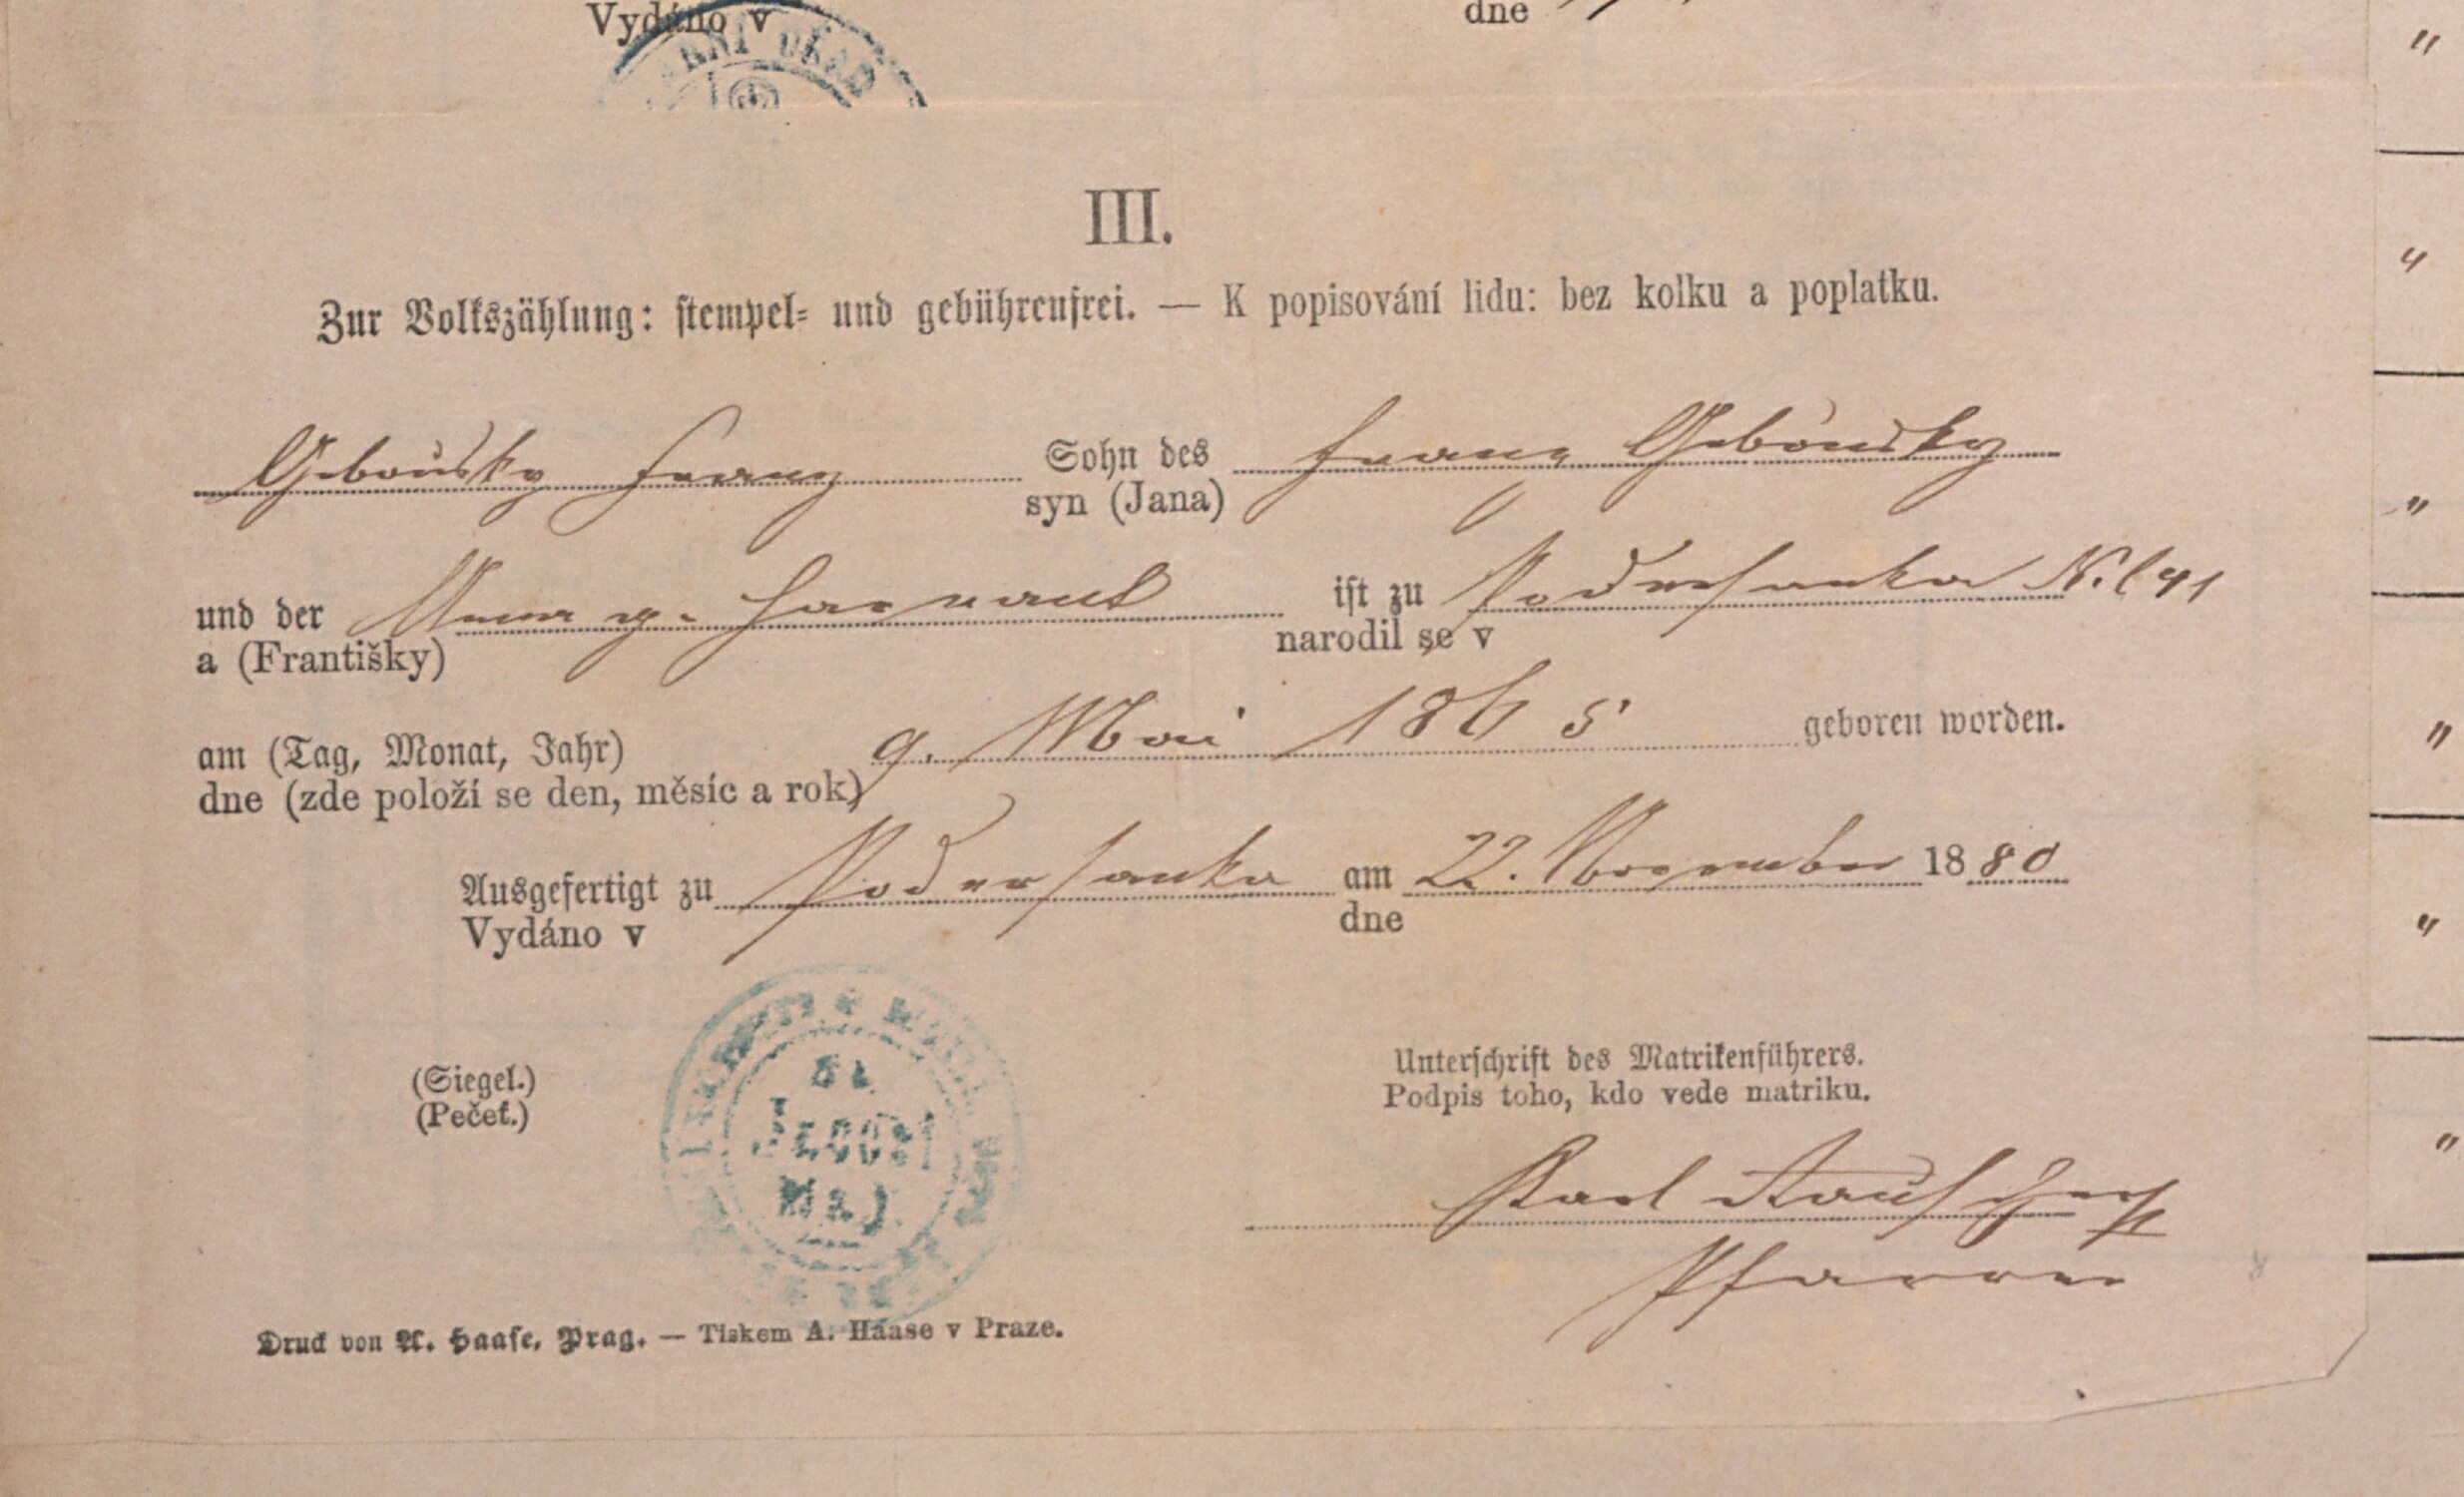 Vydáno v dne
III.
Zur Volkszählung: stempel- und gebührenfrei. — K popisování lidu: bez kolku a poplatku.
Franz Sohn des Franz
syn (Jana)
und der Anna g. ist zu Podersanka N. C 41
a (Františky) narodil se v
am (Tag, Monat, Jahr) 9. Mai 1865 geboren worden.
dne (zde položí se den, měsíc a rok)
Ausgefertigt zu Podersanka am 22. November 1880
Vydáno v dne
(Siegel.) Unterschrift des Matrikenführers.
(Pečeť.) Podpis toho, kdo vede matriku.
Karl
Pfarrer
Druck von A. Haase, Prag. — Tiskem A. Haase v Praze.